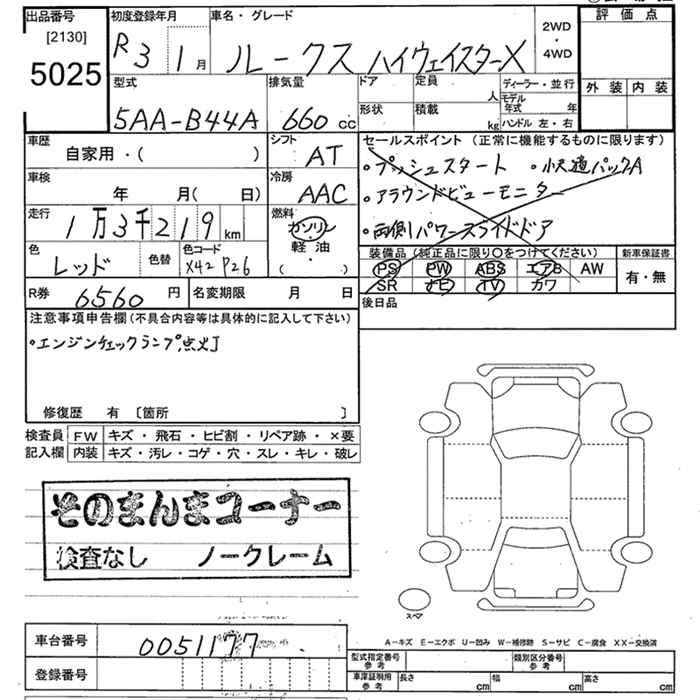 出品番号
[2130]
5025
初度登録年月
R3 1月
車名・グレード
ルークス ハイウェイスターX
2WD
・
4WD
評価点
外装 内装
型式
5AA-B44A
排気量
660 cc
ドア
形状
定員
人
積載
kg
ディーラー・並行
モデル年式 年
ハンドル 左・右
車歴
自家用・( )
シフト
AT
車検
年 月( 日)
冷房
AAC
走行
1万3千219km
燃料
ガソリン
軽油
・
( )
色
レッド
色替
色コード
X42 P26
R券
6560円
名変期限 月 日
セールスポイント(正常に機能するものに限ります)
・プッシュスタート ・小沢道パックA
・アラウンドビューモニター
・両側パワースライドドア
装備品(純正品に限り○をつけてください)
PS PW ABS エアB AW
SR ナビ TV カワ
新車保証書
有・無
後日品
注意事項申告欄(不具合内容等は具体的に記入して下さい)
・エンジンチェックランプ点灯
修復歴 有 〔箇所 〕
検査員記入欄
FW キズ・飛石・ヒビ割・リペア跡・×要
内装 キズ・汚レ・コゲ・穴・スレ・キレ・破レ
そのまんまコーナー
検査なし ノークレーム
スペア
車台番号
0051177
登録番号
A-キズ E-エクボ U-凹み W-補修跡 S-サビ C-腐食 XX-交換済
型式指定番号 参考
類別区分番号 参考
車庫証明用 参考
長さ cm
幅 cm
高さ cm